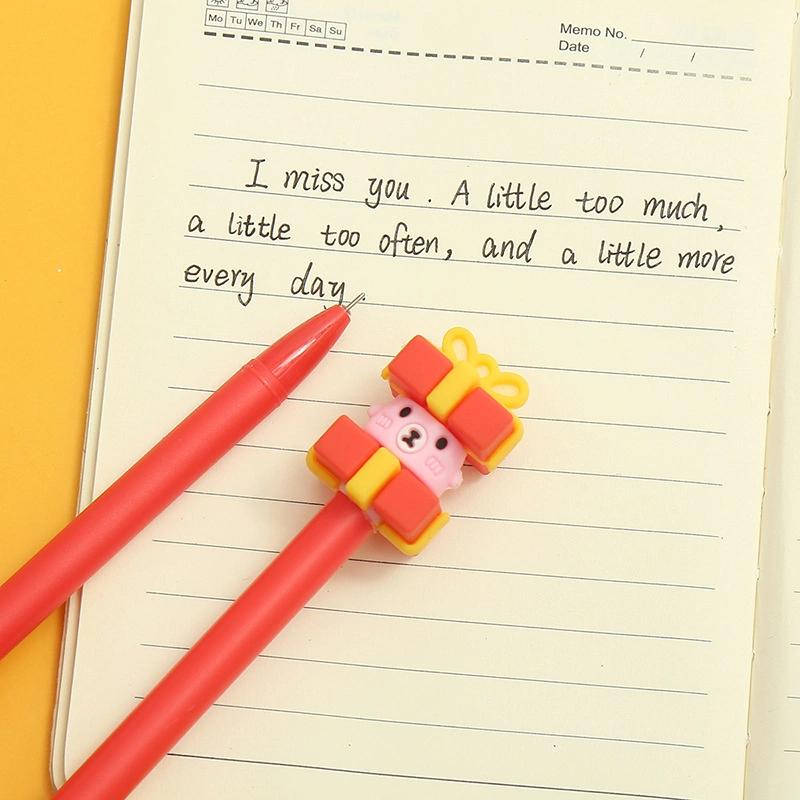 Mo Tu We Th Fr Sa Su
Memo No.
Date / /
I miss you. A little too much,
a little too often, and a little more
every day.